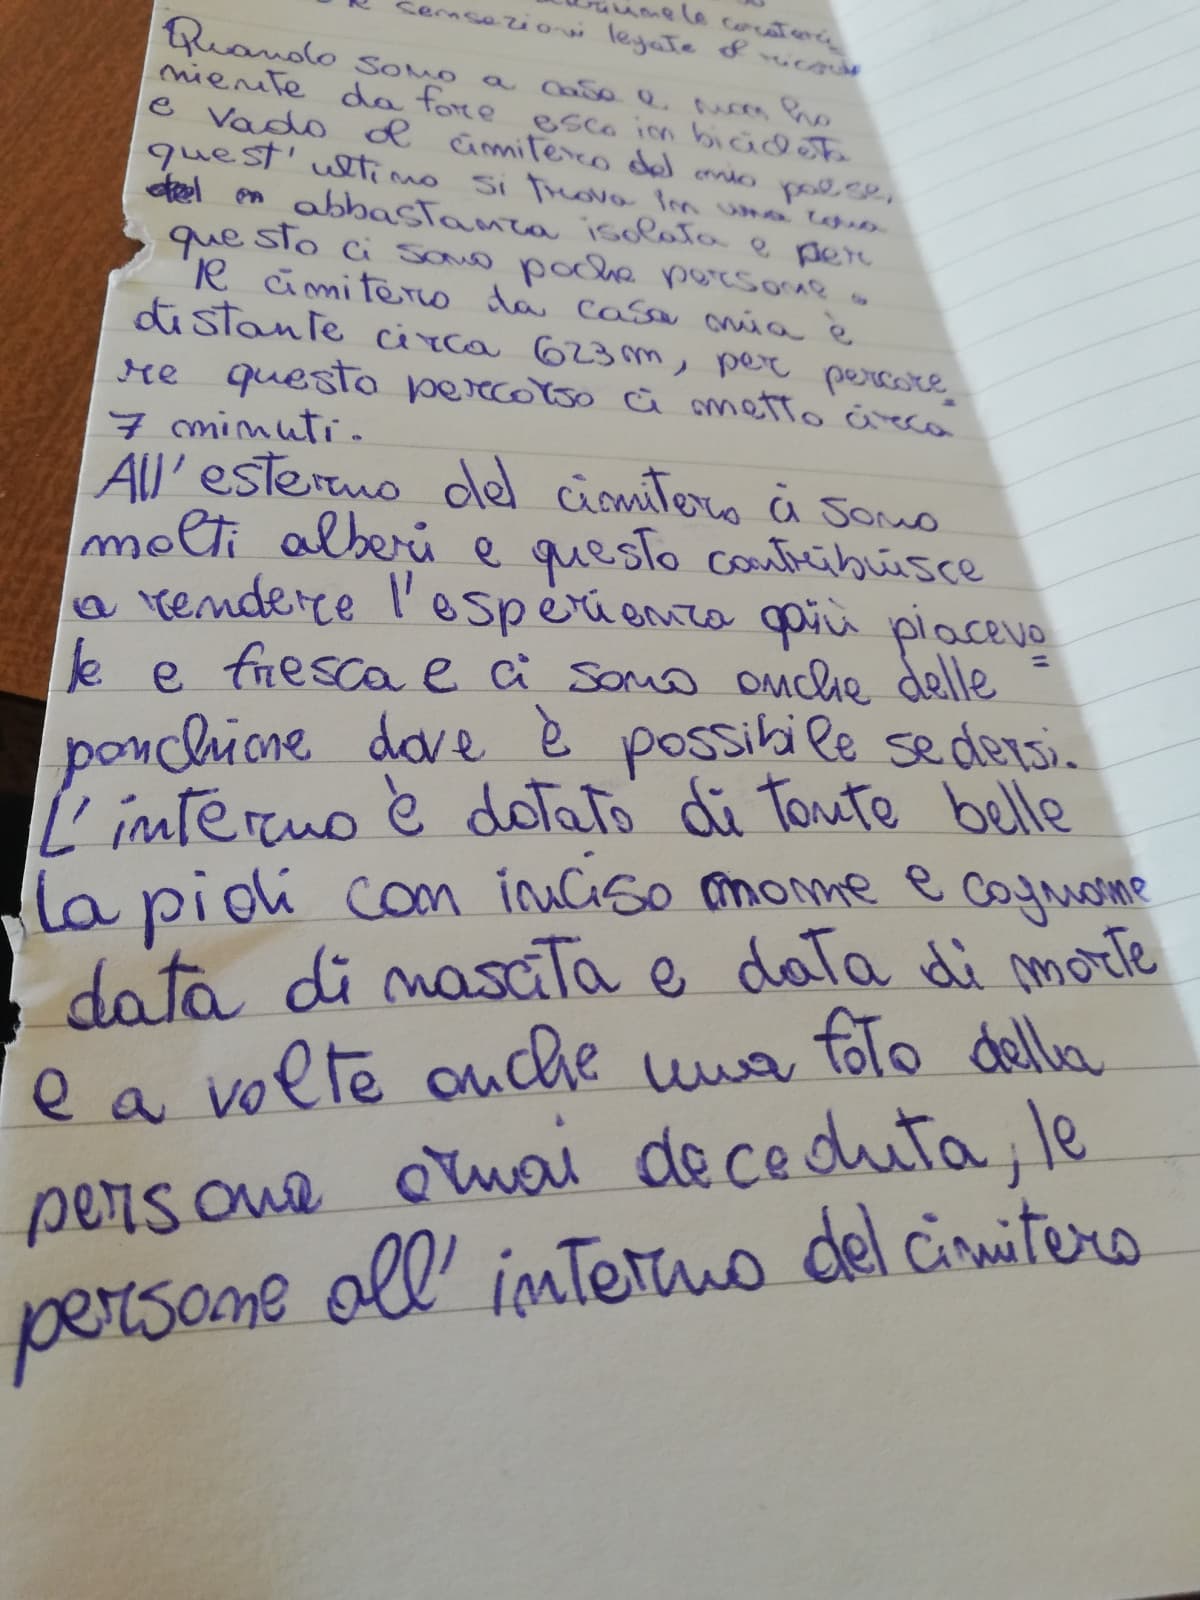 sensazioni legate al ricordo
Quando sono a casa e non ho
niente da fare esco in bicicletta
e vado al cimitero del mio paese,
quest'ultimo si trova in una zona
abbastanza isolata e per
questo ci sono poche persone.
Il cimitero da casa mia è
distante circa 623m, per percore=
re questo percorso ci metto circa
7 minuti.
All'esterno del cimitero ci sono
molti alberi e questo contribuisce
a rendere l'esperienza più piacevo=
le e fresca e ci sono anche delle
panchine dove è possibile sedersi.
L'interno è dotato di tante belle
lapidi con inciso nome e cognome
data di nascita e data di morte
e a volte anche una foto della
persona ormai deceduta, le
persone all'interno del cimitero